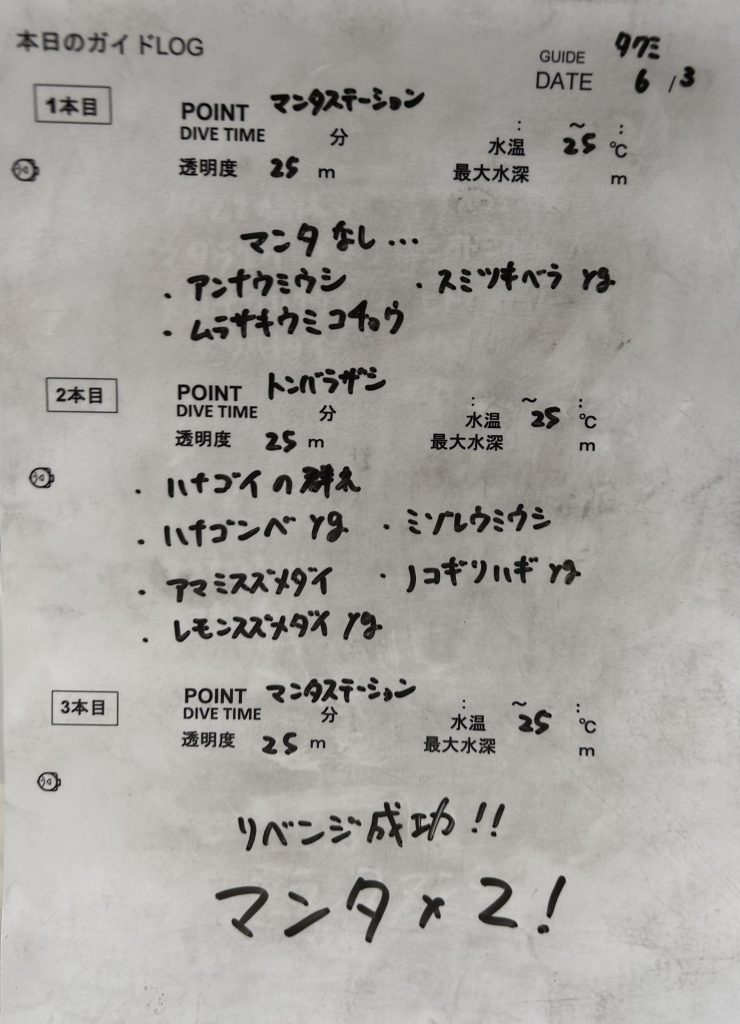 本日のガイドLOG
GUIDE タクミ
DATE 6 / 3
1本目
POINT マンタステーション
DIVE TIME 分 : ~ :
透明度 25 m 水温 25 ℃
最大水深 m
マンタなし...
・アンナウミウシ ・スミツキベラ yg.
・ムラサキウミコチョウ
2本目
POINT トンバラザシ
DIVE TIME 分 : ~ :
透明度 25 m 水温 25 ℃
最大水深 m
・ハナゴイの群れ
・ハナゴンベ yg. ・ミゾレウミウシ
・アマミスズメダイ ・ノコギリハギ yg.
・レモンスズメダイ yg.
3本目
POINT マンタステーション
DIVE TIME 分 : ~ :
透明度 25 m 水温 25 ℃
最大水深 m
リベンジ成功!!
マンタ×2!